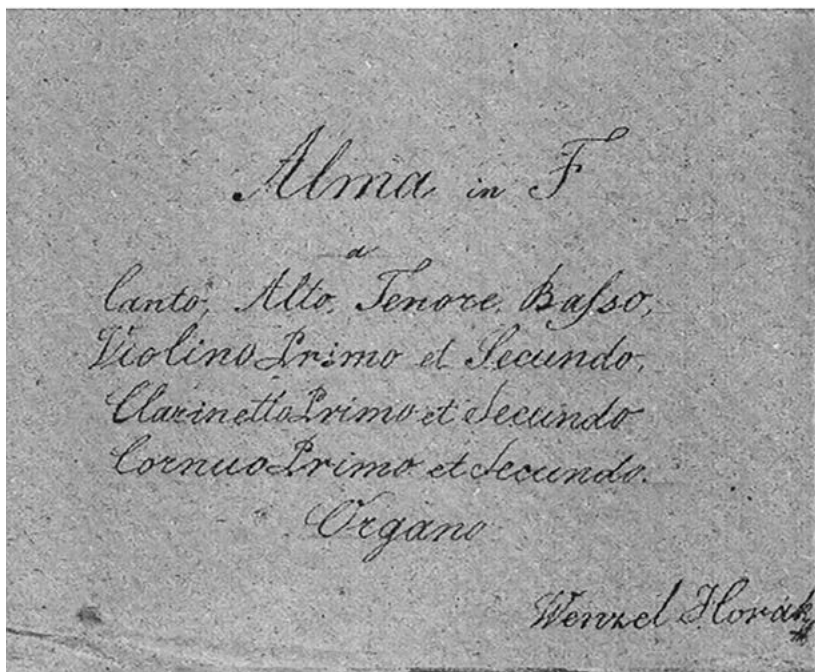 Alma in F
a
Canto, Alto, Tenore, Baſso,
Violino Primo et Secundo,
Clarinetto Primo et Secundo
Cornuo Primo et Secundo.
Organo
Wenzel Horák